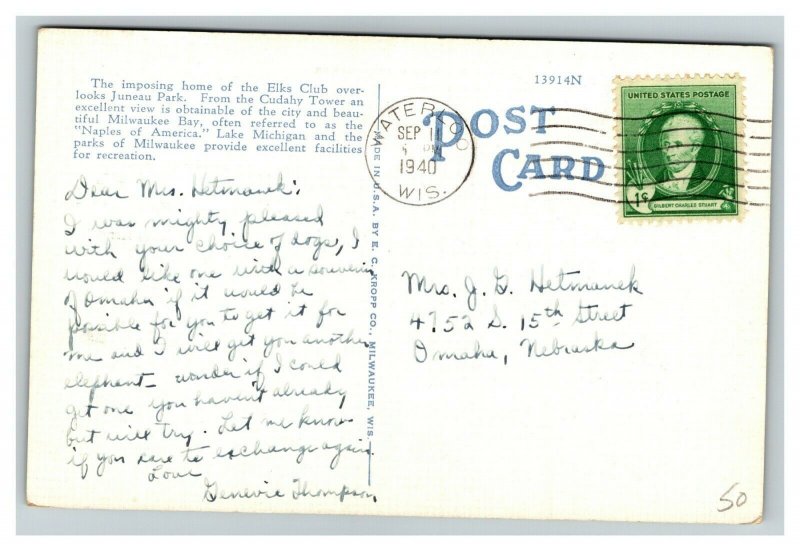 The imposing home of the Elks Club over-
looks Juneau Park. From the Cudahy Tower an
excellent view is obtainable of the city and beau-
tiful Milwaukee Bay, often referred to as the
"Naples of America." Lake Michigan and the
parks of Milwaukee provide excellent facilities
for recreation.
Dear Mrs. Hetmanek:
I was mighty pleased
with your choice of dogs, I
would like one with a souvenir
of Omaha if it would be
possible for you to get it for
me and I will get you another
elephant - wonder if I could
get one you havent already
but will try. Let me know
if you care to exchange again.
Love
Genevie Thompson.
MADE IN U.S.A. BY E. C. KROPP CO., MILWAUKEE, WIS.
13914N
POST
CARD
WATERLOO
SEP 11
PM
1940
WIS.
UNITED STATES POSTAGE
1¢
GILBERT CHARLES STUART
Mrs. J. G. Hetmanek
4752 S. 15th Street
Omaha, Nebraska
50